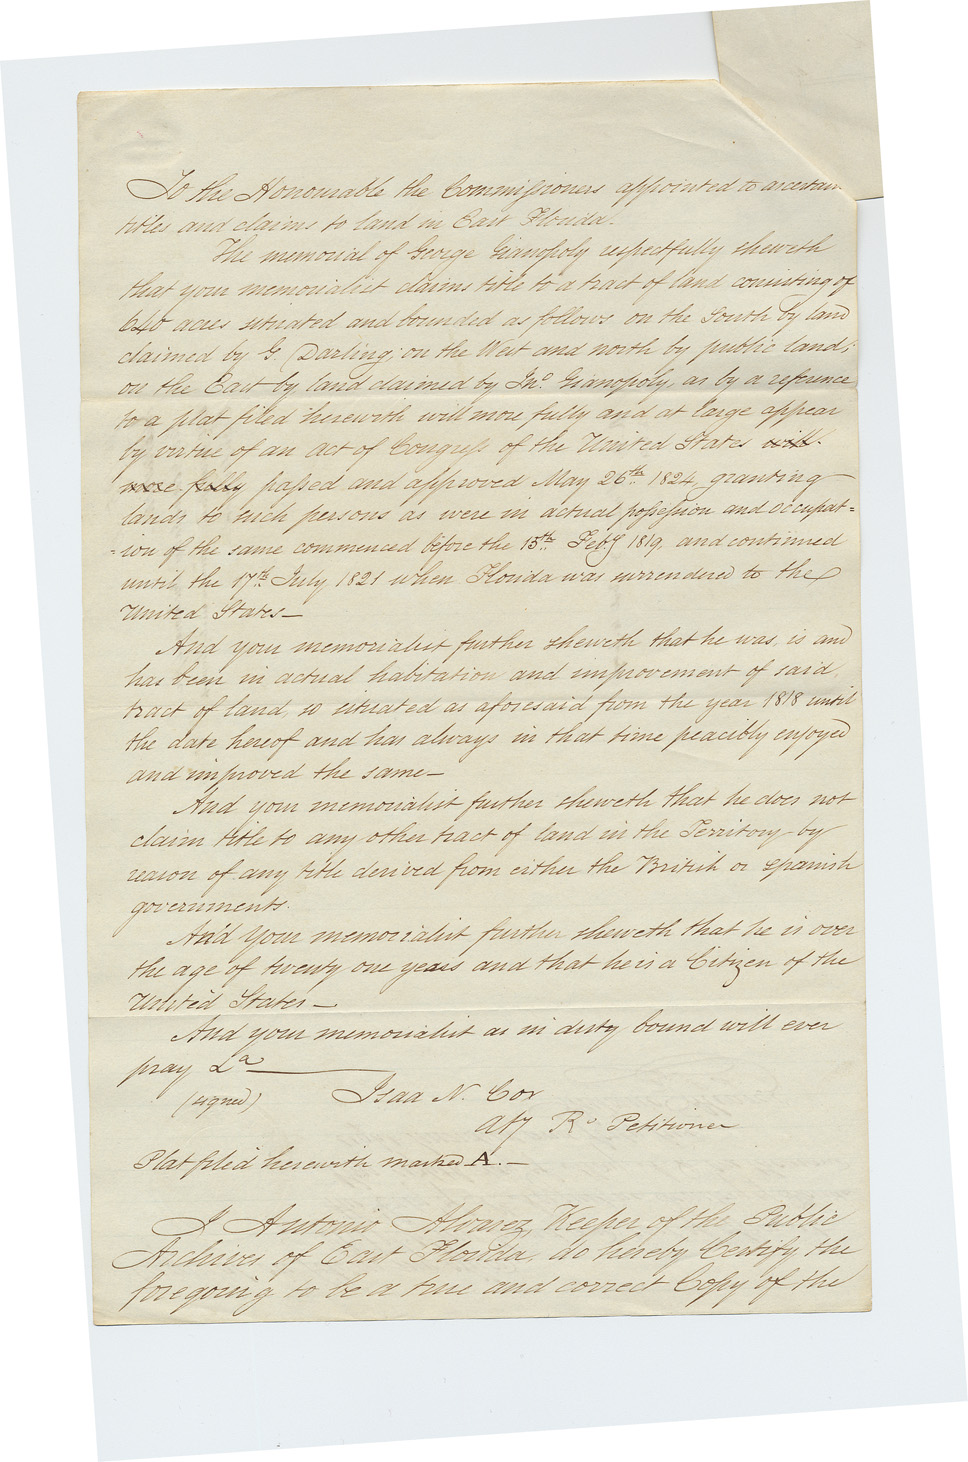 To the Honourable the Commissioners appointed to ascertain
titles and claims to land in East Florida.
The memorial of George Gianopoly respectfully sheweth
that your memorialist claims title to a tract of land consisting of
640 acres situated and bounded as follows on the South by land
claimed by G. Darling; on the West and north by public land;
on the East by land claimed by Jno. Gianopoly, as by a refrence
to a plat filed herewith will more fully and at large appear
by virtue of an act of Congress of the United States will
more fully passed and approved May 26th. 1824, granting
lands to such persons as were in actual possession and occupat=
=ion of the same commenced before the 15th. Feby 1819, and continued
until the 17th. July 1821 when Florida was surrendered to the
United States—
And your memorialist further sheweth that he was, is and
has been in actual habitation and improvement of said
tract of land, so situated as aforesaid from the year 1818 until
the date hereof and has always in that time peacibly enjoyed
and improved the same—
And your memorialist further sheweth that he does not
claim title to any other tract of land in the Territory by
reason of any title derived from either the British or Spanish
governments.
And your memorialist further sheweth that he is over
the age of twenty one years and that he is a Citizen of the
United States—
And your memorialist as in duty bound will ever
pray &a
(signed) Isaa N. Cox
Aty Petitioner
Plat filed herewith marked A.—
I Antonio Alvarez, Keeper of the Public
Archives of East Florida, do hereby Certify the
foregoing to be a true and correct Copy of the